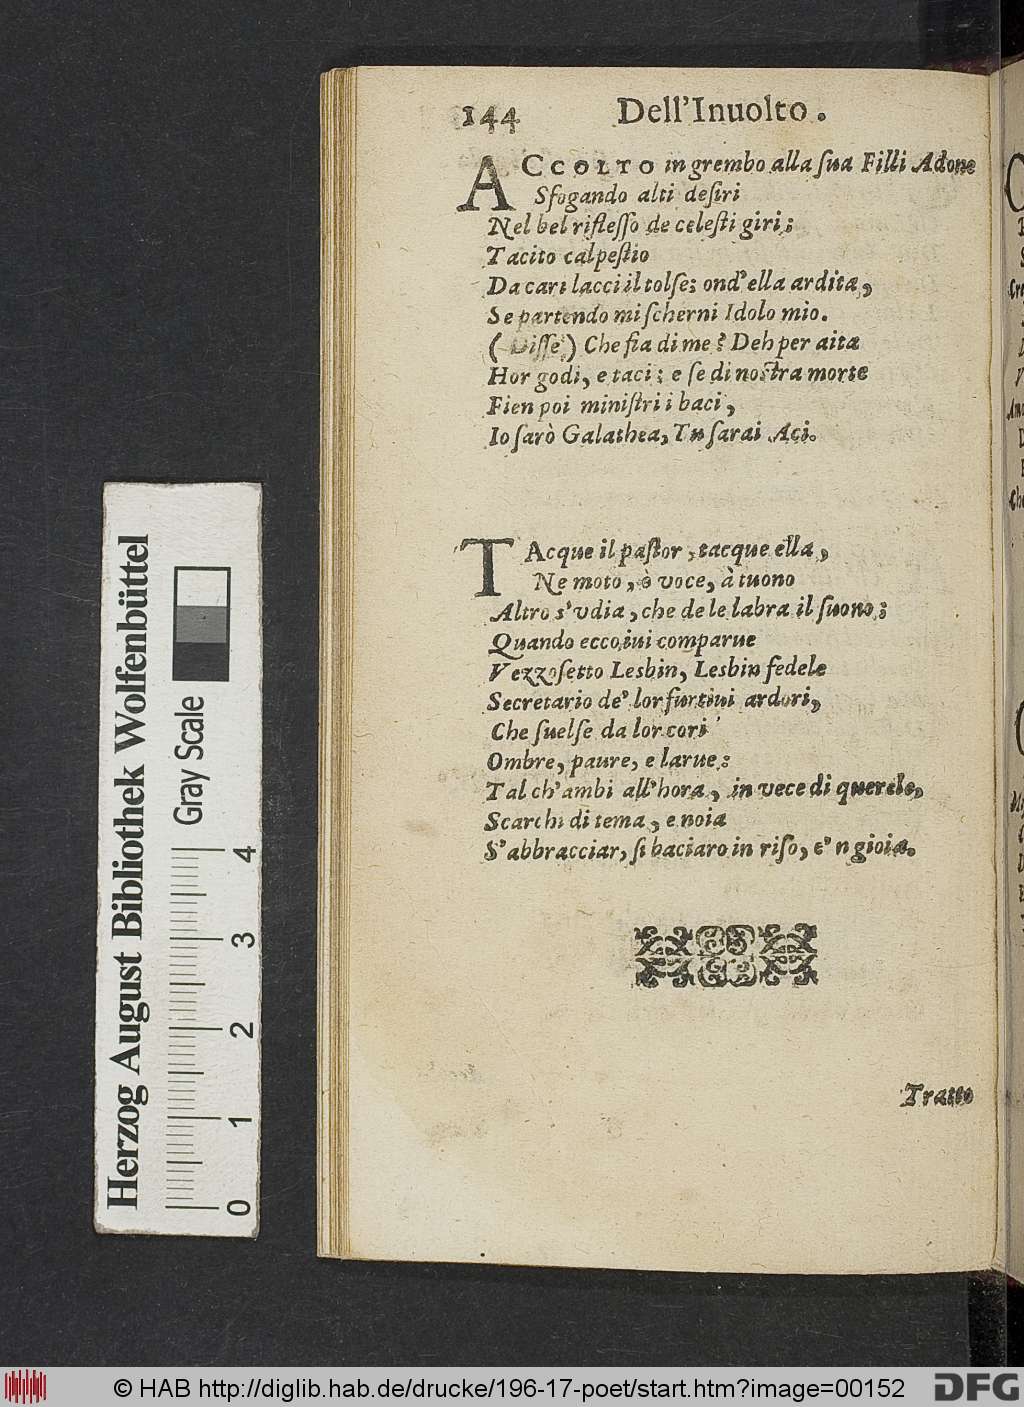 144 Dell'Inuolto.
ACCOLTO in grembo alla ſua Filli Adone
Sfogando alti deſiri
Nel bel rifleſſo de celeſti giri;
Tacito calpeſtio
Da cari lacci il tolſe; ond'ella ardita,
Se partendo mi ſcherni Idolo mio.
(Diſſe) Che fia di me? Deh per aita
Hor godi, e taci; e ſe di noſtra morte
Fien poi miniſtri i baci,
Io ſarò Galathea, Tu ſarai Aci.
TAcque il paſtor, tacque ella,
Ne moto, ò voce, à tuono
Altro s'vdia, che de le labra il ſuono;
Quando ecco iui comparue
Vezzoſetto Lesbin, Lesbin fedele
Secretario de' lor furtiui ardori,
Che ſuelſe da lor cori
Ombre, paure, e larue;
Tal ch'ambi all'hora, in vece di querele,
Scarchi di tema, e noia
S'abbracciar, ſi baciaro in riſo, e'n gioia.
Tratto
Herzog August Bibliothek Wolfenbüttel
Gray Scale
0 1 2 3 4
© HAB http://diglib.hab.de/drucke/196-17-poet/start.htm?image=00152
DFG